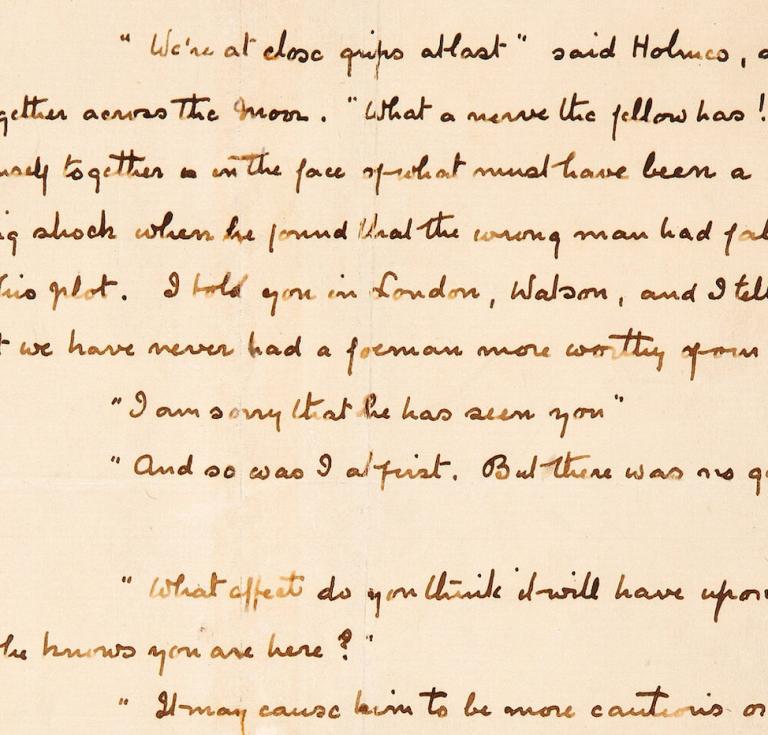 "We're at close grips at last" said Holmes,
gether across the Moor. "What a nerve the fellow has!
together in the face of what must have been a
shock when he found that the wrong man had
his plot. I told you in London, Watson, and I tell
we have never had a foeman more worthy of our
"I am sorry that he has seen you"
"And so was I at first. But there was no
"What affect do you think it will have upon
he knows you are here?"
"It may cause him to be more cautious or